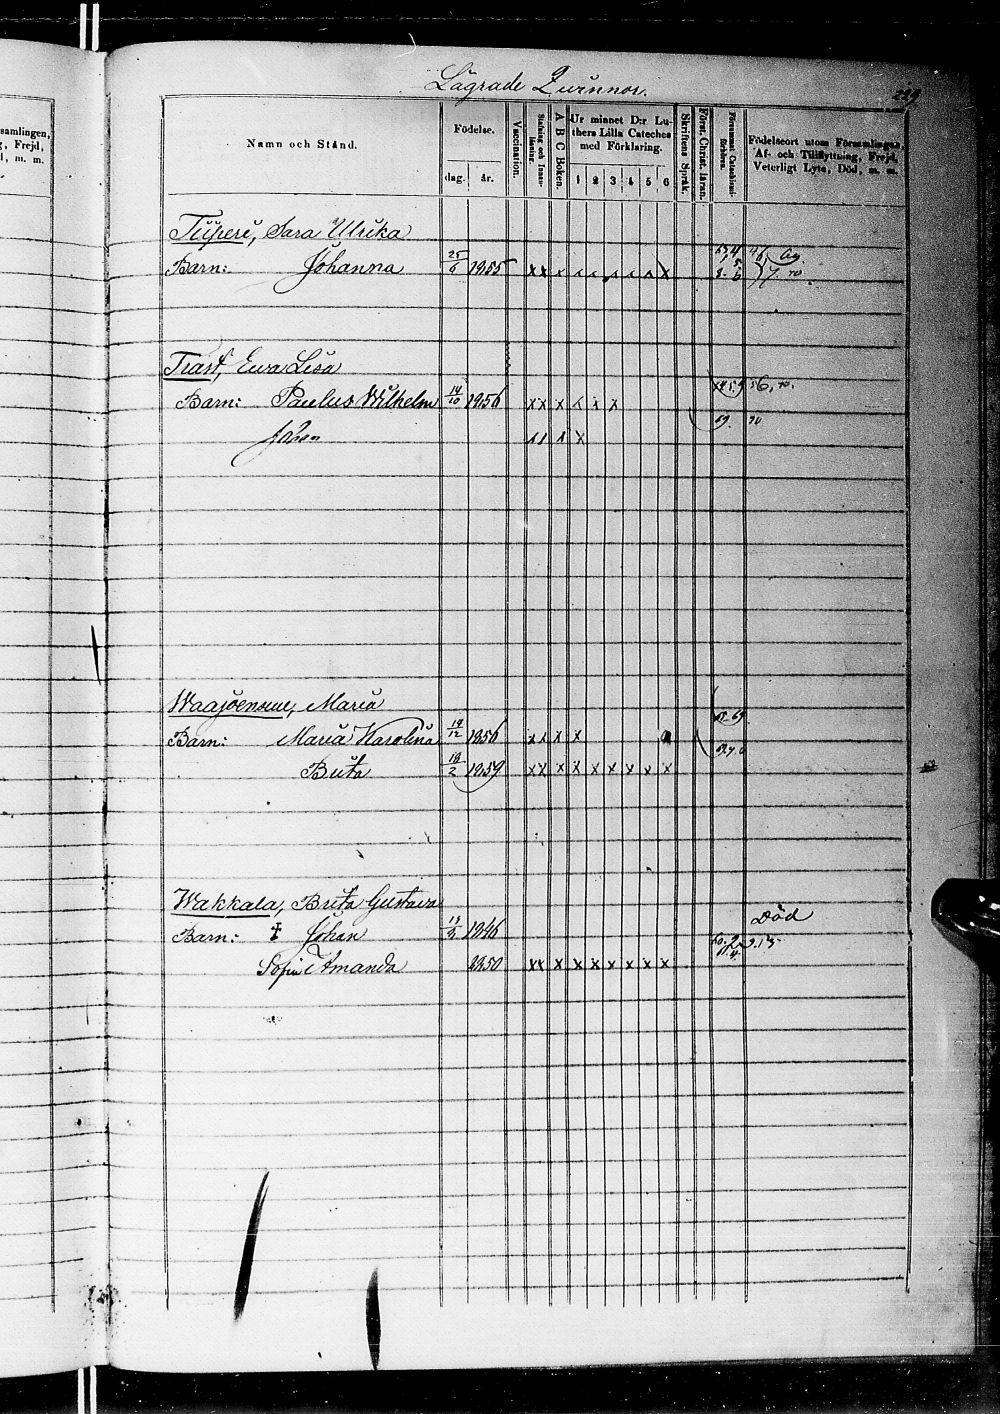 Lägrade Qvinnor.
229
samlingen,
, Frejd,
, m. m.
Namn och Stånd.
Födelse.
dag. år.
Vaccination.
Stafning och Innan-läsning.
A B C Boken.
Ur minnet D:r Lu-
thers Lilla Cateches
med Förklaring.
1 2 3 4 5 6
Skriftens Språk.
Först. Christ. läran.
Försummat Catechismi-förhören.
Födelseort utom Församlingen,
Af- och Tillflyttning, Frejd,
Veterligt Lyte, Död, m. m.
Tuperi, Sara Ulrika
Barn: Johanna 25/6 1855 x x x x x x x x x
Trast, Ewa Lisa
Barn: Paulus Wilhelm 14/10 1856 x x x x x x
Johan x x x x
Waajoensuu, Maria
Barn: Maria Karolina 19/12 1856 x x x x
Brita 18/2 1859 x x x x x x x x x
Wakkala, Brita Gustava
Död
Barn: ‡ Johan 1846
Sofia Amanda 50 x x x x x x x x x